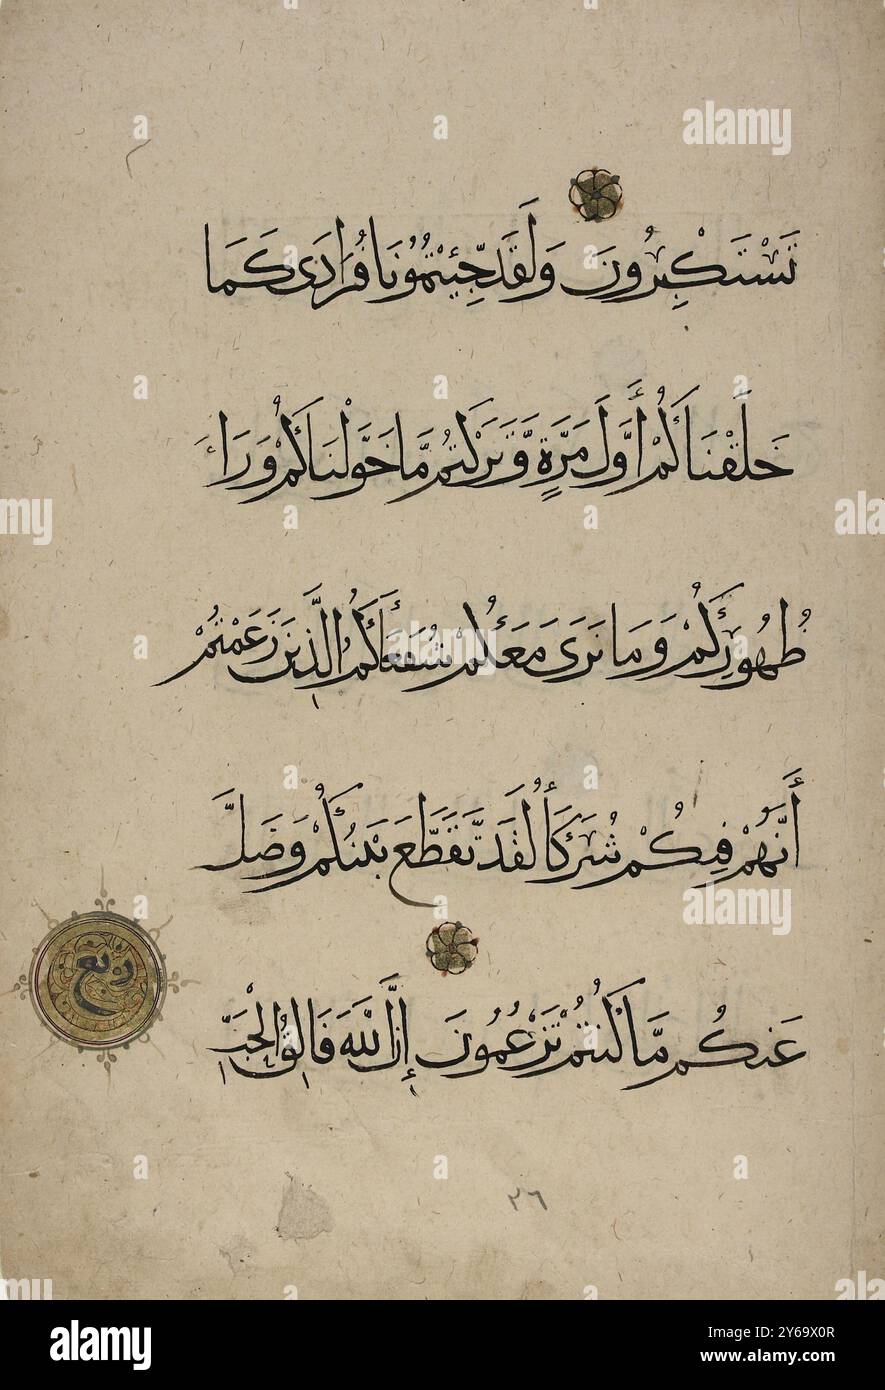 تَسْتَكْبِرُونَ وَلَقَدْ جِئْتُمُونَا فُرَادَى كَمَا
خَلَقْنَاكُمْ أَوَّلَ مَرَّةٍ وَتَرَكْتُمْ مَّا خَوَّلْنَاكُمْ وَرَاءَ
ظُهُورِكُمْ وَمَا نَرَى مَعَكُمْ شُفَعَاءَكُمُ الَّذِينَ زَعَمْتُمْ
أَنَّهُمْ فِيكُمْ شُرَكَاءُ لَقَد تَّقَطَّعَ بَيْنَكُمْ وَضَلَّ
ربع
عَنكُم مَّا كُنتُمْ تَزْعُمُونَ إِنَّ اللَّهَ فَالِقُ الْحَبِّ
٢٦
a alamy
alamy
Image ID: 2Y69X0R
www.alamy.com